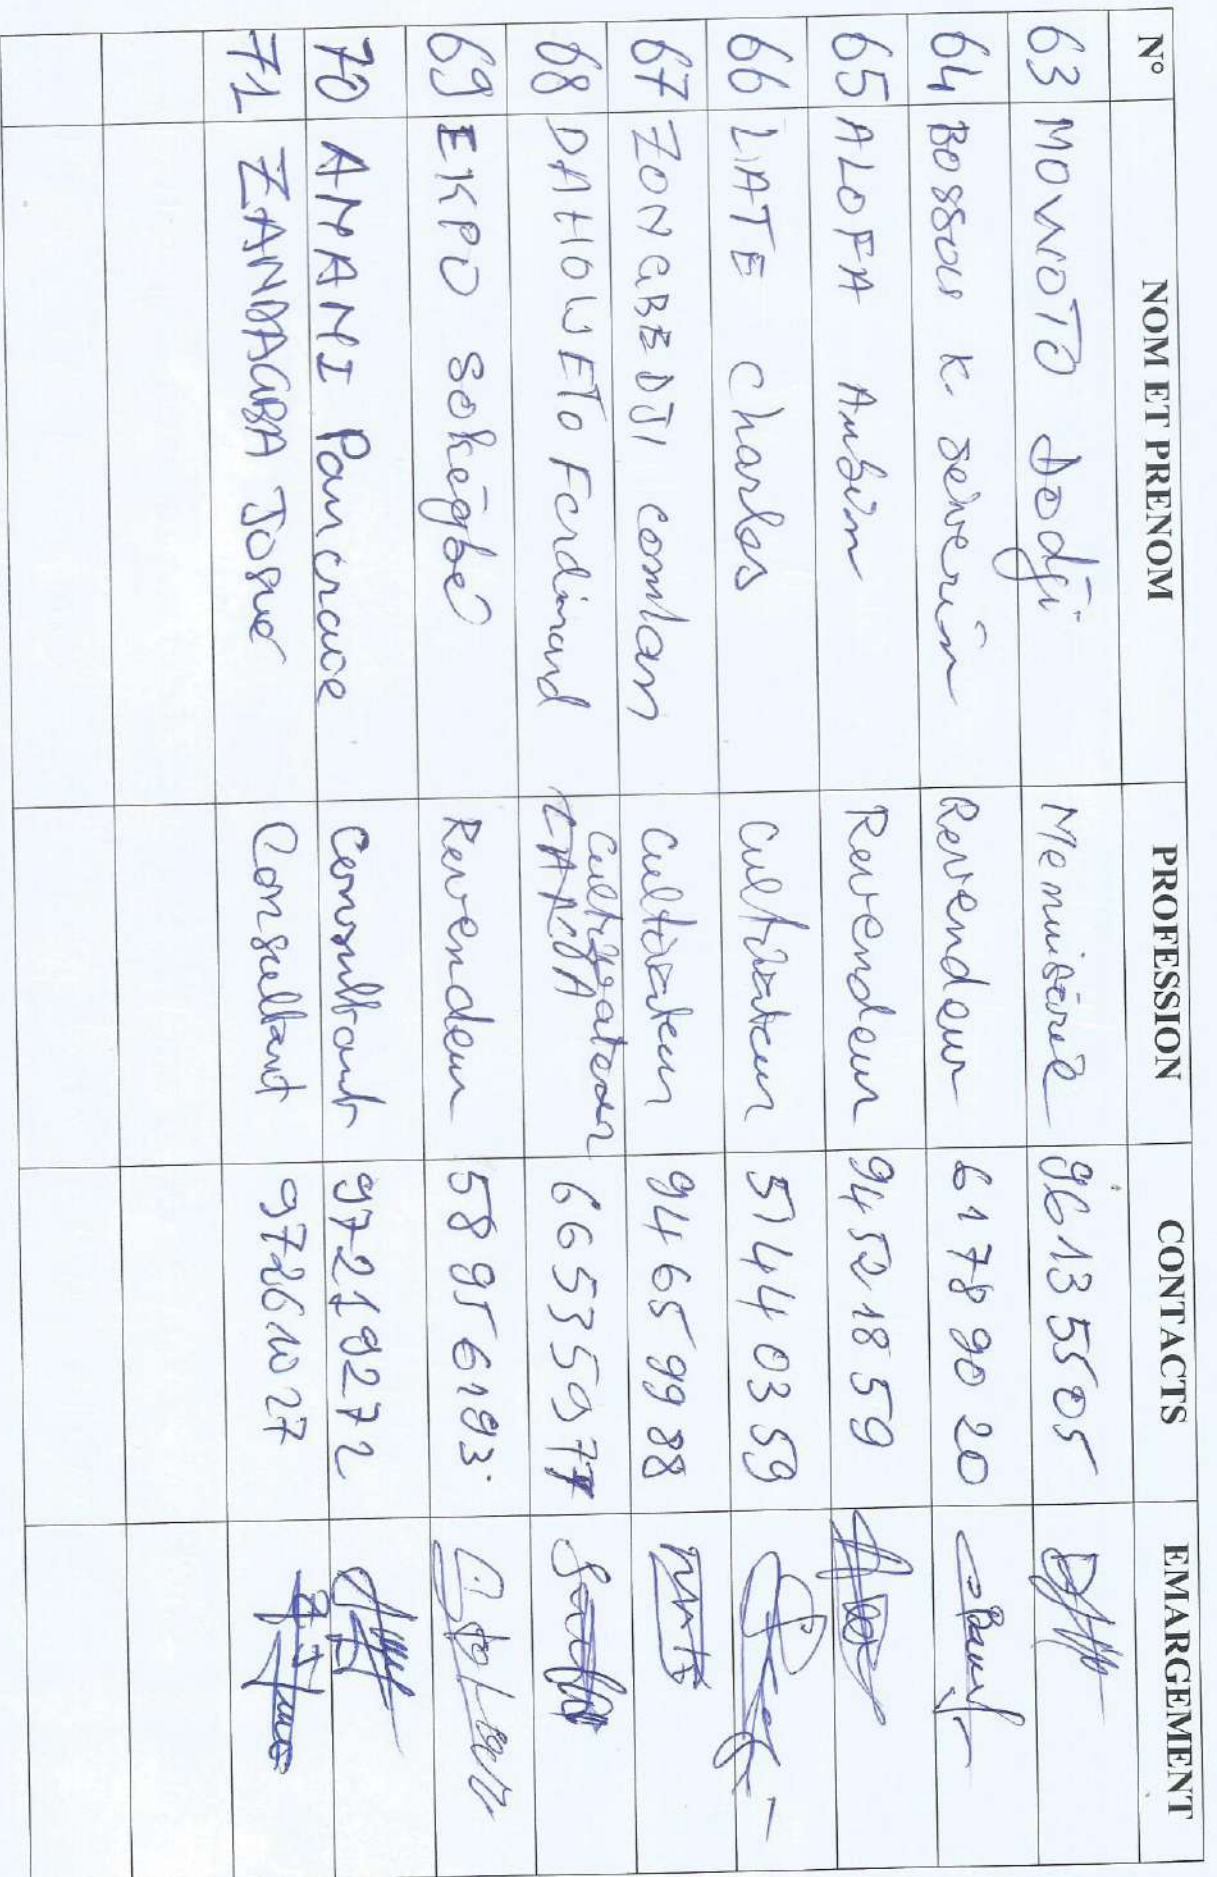 N° NOM ET PRENOM PROFESSION CONTACTS EMARGEMENT
63 MONNOTO Dodji Menuisière 96 13 55 05
64 BOSSOU K Séverin Revendeur 61 78 90 20
65 ALOFA Aubin Revendeur 94 52 18 59
66 LIATE Charles Cultivateur 51 44 03 59
67 ZONGBEDJI Comlan Cultivateur 94 65 99 88
68 DAHOWETO Ferdinand Cultivateur 66535977
69 EKPO Sokégbé Revendeur 58 95 61 93
70 AMANI Pancrace Consultant 97219272
71 ZANDAGBA Josué Consultant 97261027